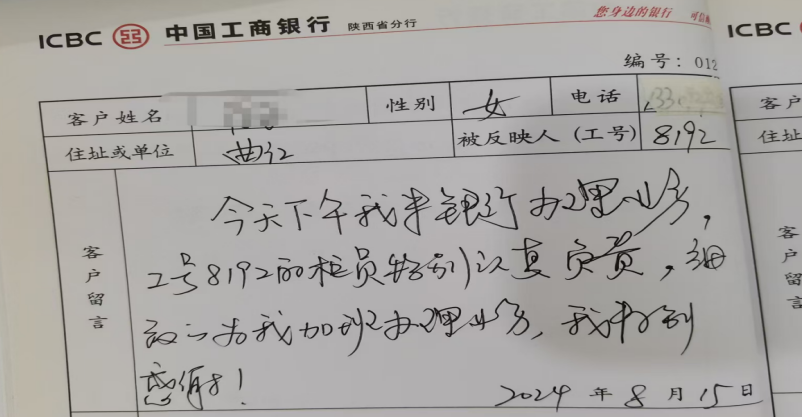 ICBC 中国工商银行 陕西省分行 您身边的银行 可信
ICBC
编号：012
客户姓名 性别 女 电话 133
客户
住址或单位 曲江 被反映人（工号） 8192
住址
客户留言
今天下午我来银行办理业务，
工号8192的柜员特别认真负责，细
为我加班办理业务，我
感
！
2024年8月15日
客户留言